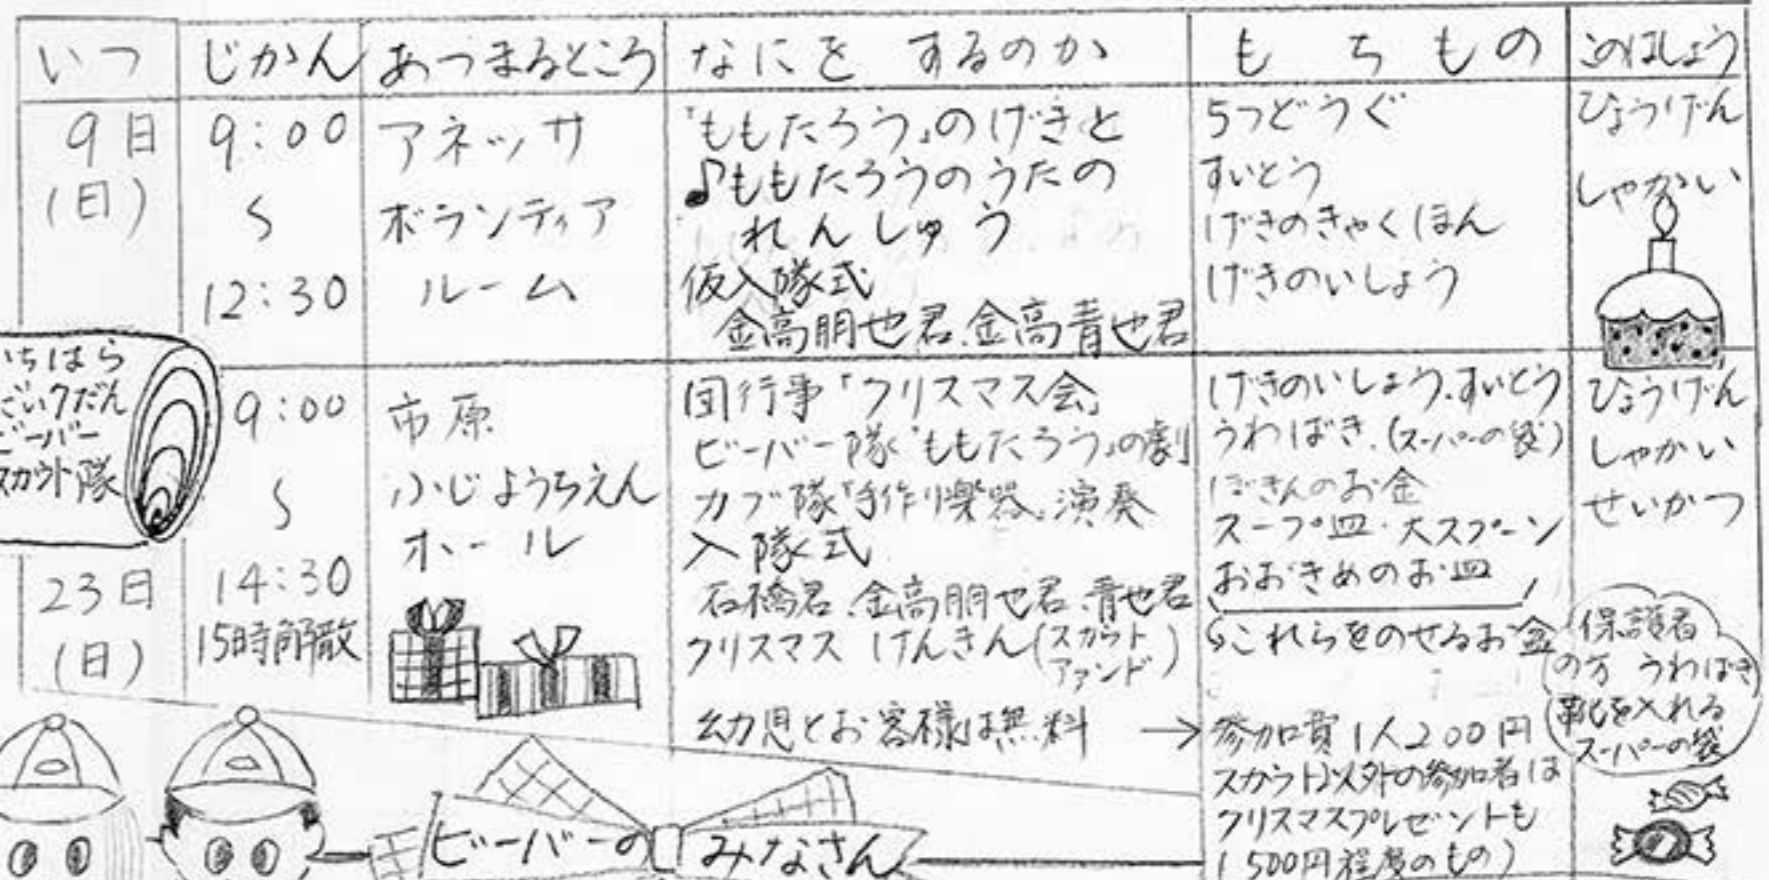 いつ
じかん
あつまるところ
なにを するのか
もちもの
このはしょう
9日
(日)
9:00
〜
12:30
アネッサ
ボランティア
ルーム
「ももたろう」のげきと
♪ももたろうのうたの
れんしゅう
仮入隊式
金高朋也君、金高青也君
5つどうぐ
すいとう
げきのきゃくほん
げきのいしょう
ひょうげん
しゃかい
いちはら
だい7だん
ビーバー
スカウト隊
23日
(日)
9:00
〜
14:30
15時解散
市原
ふじようちえん
ホール
団行事「クリスマス会」
ビーバー隊「ももたろう」の劇
カブ隊「手作り楽器」演奏
入隊式
石橋君、金高朋也君、青也君
クリスマス けんきん(スカウト
ファンド)
幼児とお客様は無料 →
げきのいしょう、すいとう
うわばき、(スーパーの袋)
ぼきんのお金
スープ皿・大スプーン
おおきめのお皿
これらをのせるお盆
参加費1人200円
スカウト以外の参加者は
クリスマスプレゼントも
(500円程度のもの)
ひょうげん
しゃかい
せいかつ
保護者
の方 うわばき
靴を入れる
スーパーの袋
ビーバーの みなさん